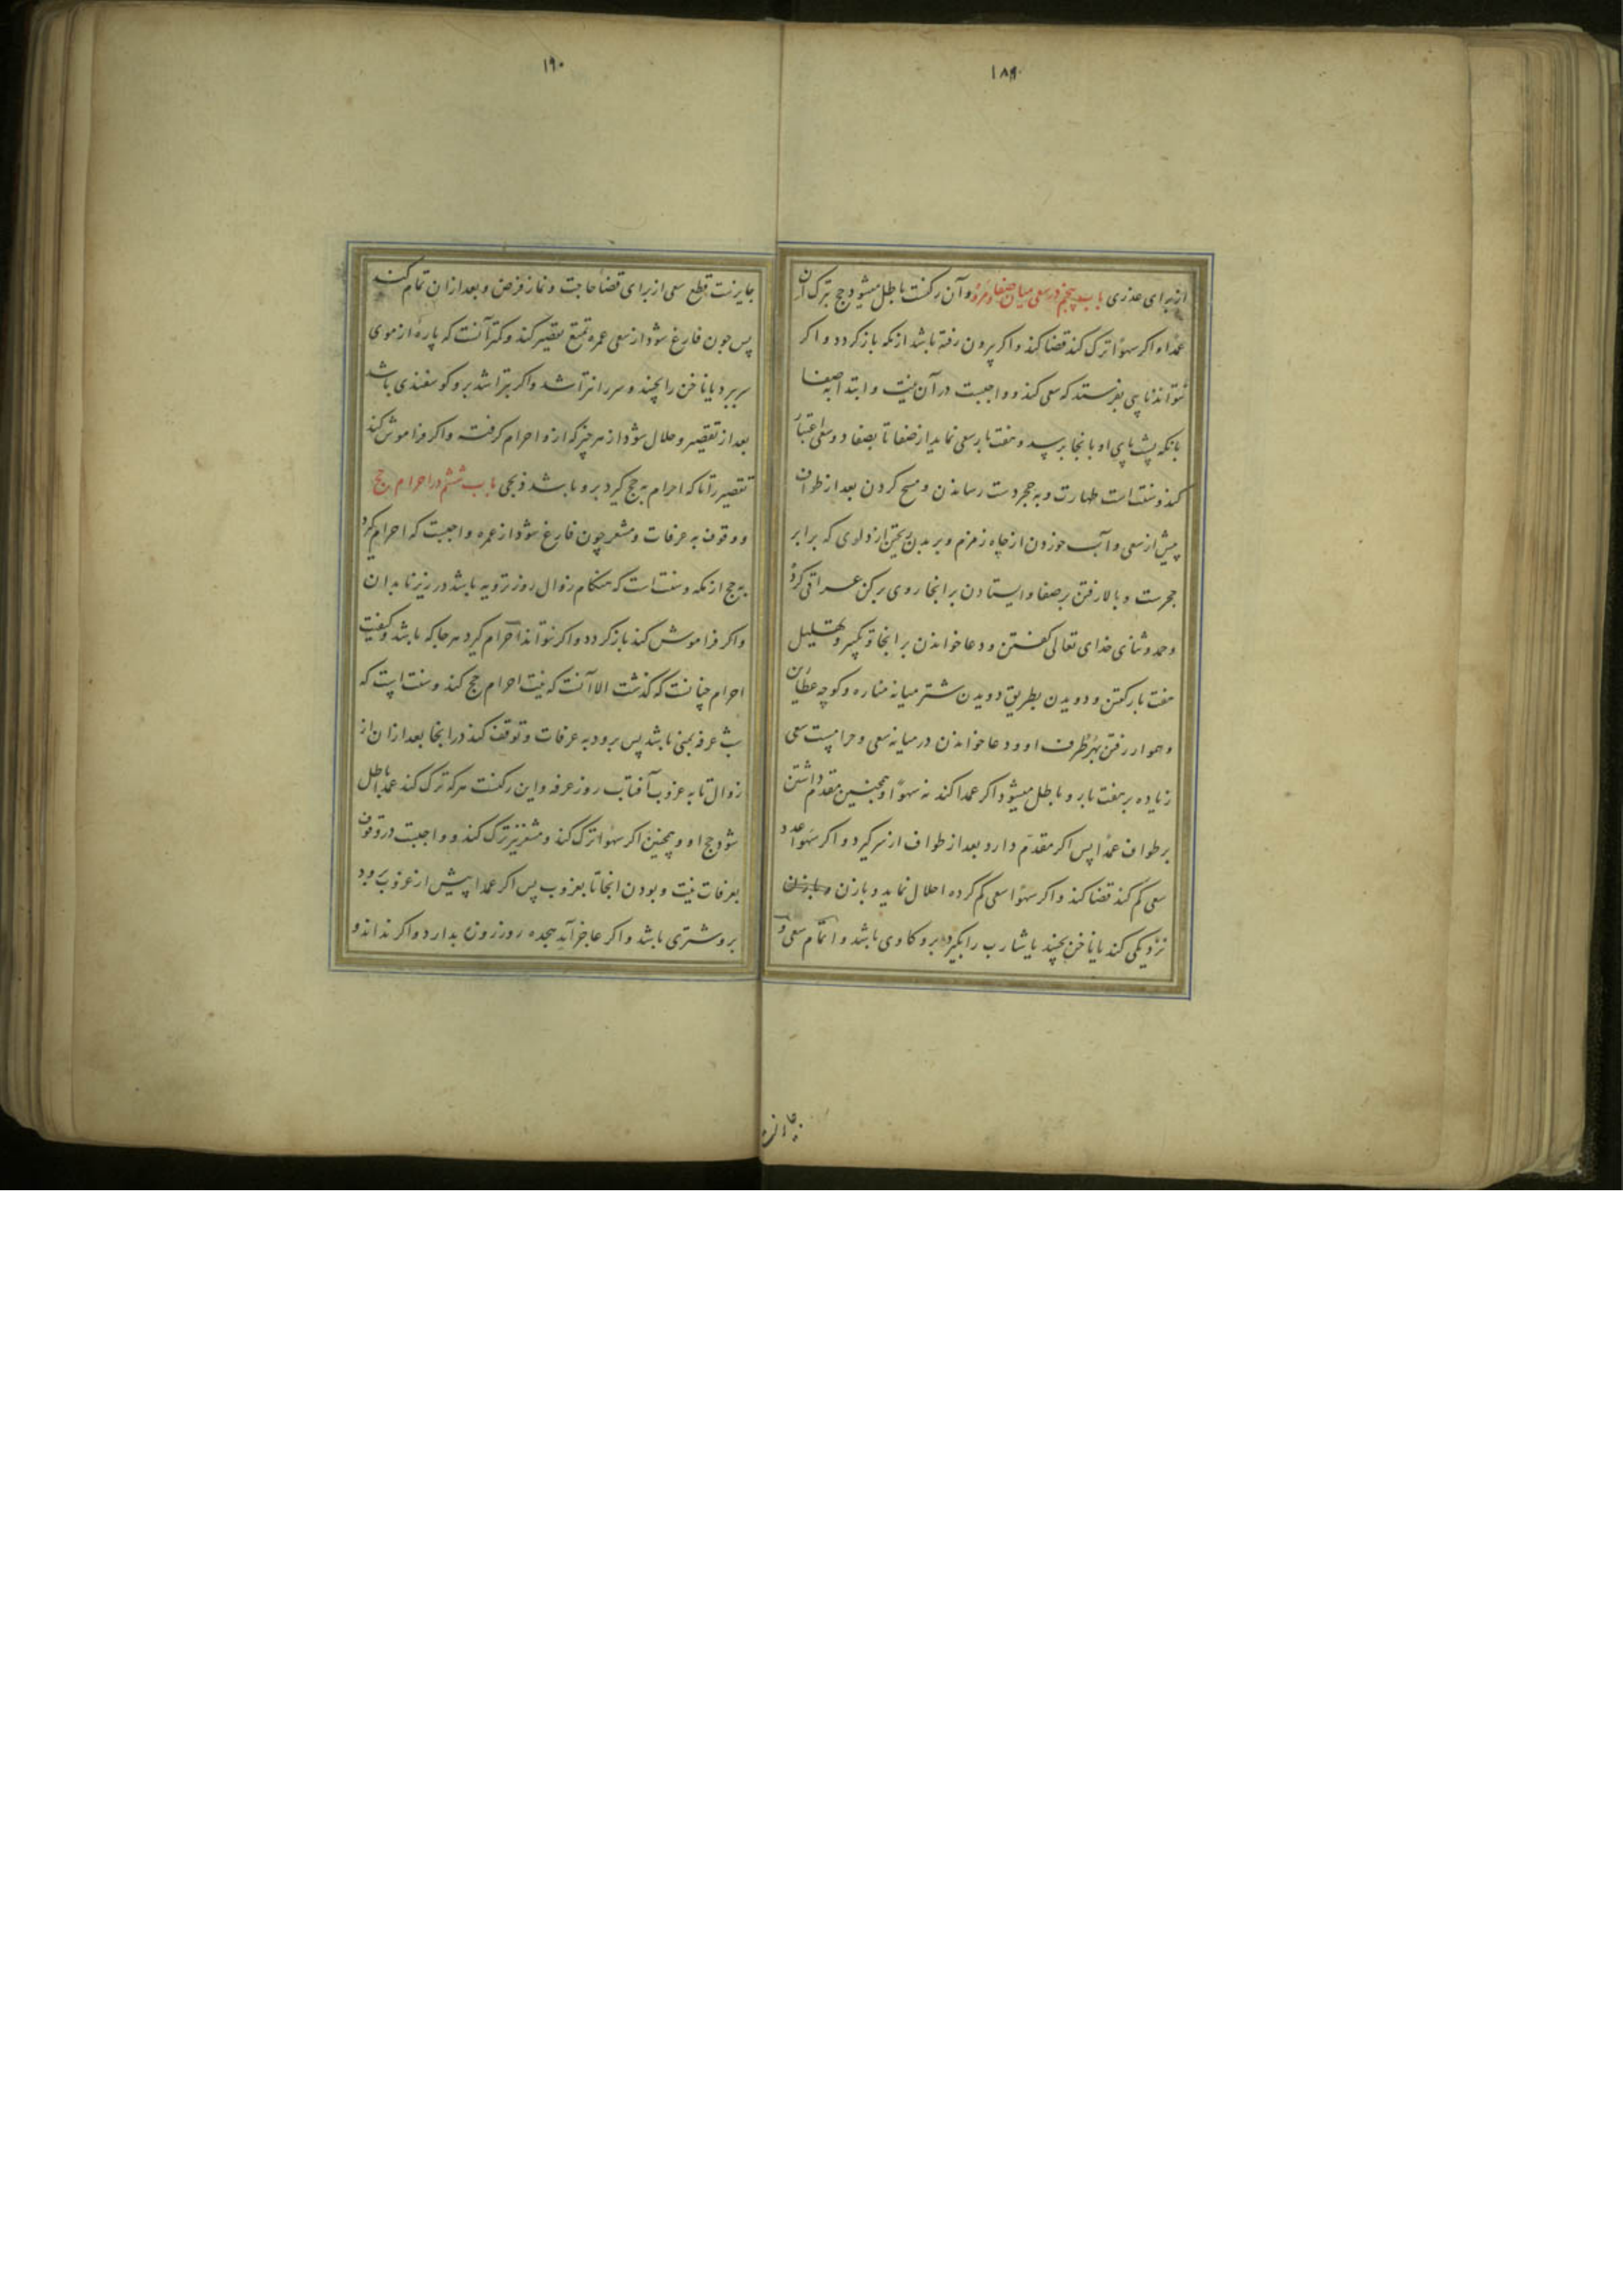 ۱۸۹
از برای عذری باب پنجم در سعی میان صفا و مروه و آن رکنست باطل میشود حج بترک آن
عمدا و اکر سهوا ترک کند قضا کند و اکر بیرون رفته باشد از مکه باز کردد و اکر
نتواند نایبی بفرستد که سعی کند و واجبست در آن نیت و ابتدا بصفا
بانکه پشت پای او بانجا برسد و هفت بار سعی نماید از صفا تا بصفا دو سعی اعتبار
کند و سنت است طهارت و به حجر دست رسانیدن و مسح کردن بعد از طواف
پیش از سعی و آب خوردن از چاه زمزم و بر بدن ریختن از دلوی که برابر
حجرست و بالا رفتن بر صفا و ایستادن بر انجا روی برکن عراقی کرده
و حمد و ثنای خدای تعالی کفتن و دعا خواندن بر انجا و تکبیر و تهلیل
هفت بار کفتن و دویدن بطریق دویدن شتر میانه مناره و کوچه عطاران
و هموار رفتن بهر طرف او و دعا خواندن در میانه سعی و حرامست سعی
زیاده بر هفت بار و باطل میشود اکر عمدا کند نه سهوا و همچنین مقدم داشتن
بر طواف عمدا پس اکر مقدم دارد بعد از طواف از سر کیرد و اکر سهوا عدد
سعی کم کند قضا کند و اکر سهوا سعی کم کرده احلال نماید و با زن
نزدیکی کند یا ناخن بچیند یا شارب را بکیرد برو کاوی باشد و اتمام سعی و
۱۹۰
جایزنست قطع سعی از برای قضا حاجت و نماز فرض و بعد از ان تمام کند
پس چون فارغ شود از سعی عمره تمتع تقصیر کند و کمتر آنست که پاره از موی
سر ببرد یا ناخن را بچیند و سر را نتراشد و اکر بتراشد برو کوسفندی باشد
بعد از تقصیر و حلال شود از هر چیز که ازو احرام کرفته و اکر فراموش کند
تقصیر را تا که احرام به حج کیرد برو باشد ذبحی باب ششم در احرام حج
و وقوف به عرفات و مشعر چون فارغ شود از عمره واجبست که احرام کیرد
به حج از مکه و سنت است که هنکام زوال روز ترویه باشد در زیر ناودان
و اکر فراموش کند باز کردد و اکر نتواند احرام کیرد هر جا که باشد و کیفیت
احرام چنانست که کذشت الا آنست که نیت احرام حج کند و سنت است که
شب عرفه بمنی باشد پس برود به عرفات و توقف کند در انجا بعد از ان از
زوال تا به غروب آفتاب روز عرفه و این رکنست هر که ترک کند عمدا باطل
شود حج او و همچنین اکر سهوا ترک کند و مشعر نیز ترک کند و واجبست در وقوف
بعرفات نیت و بودن انجا تا بغروب پس اکر عمدا پیش از غروب برود
برو شتری باشد و اکر عاجز آید هجده روز روزه بدارد و اکر نداند و